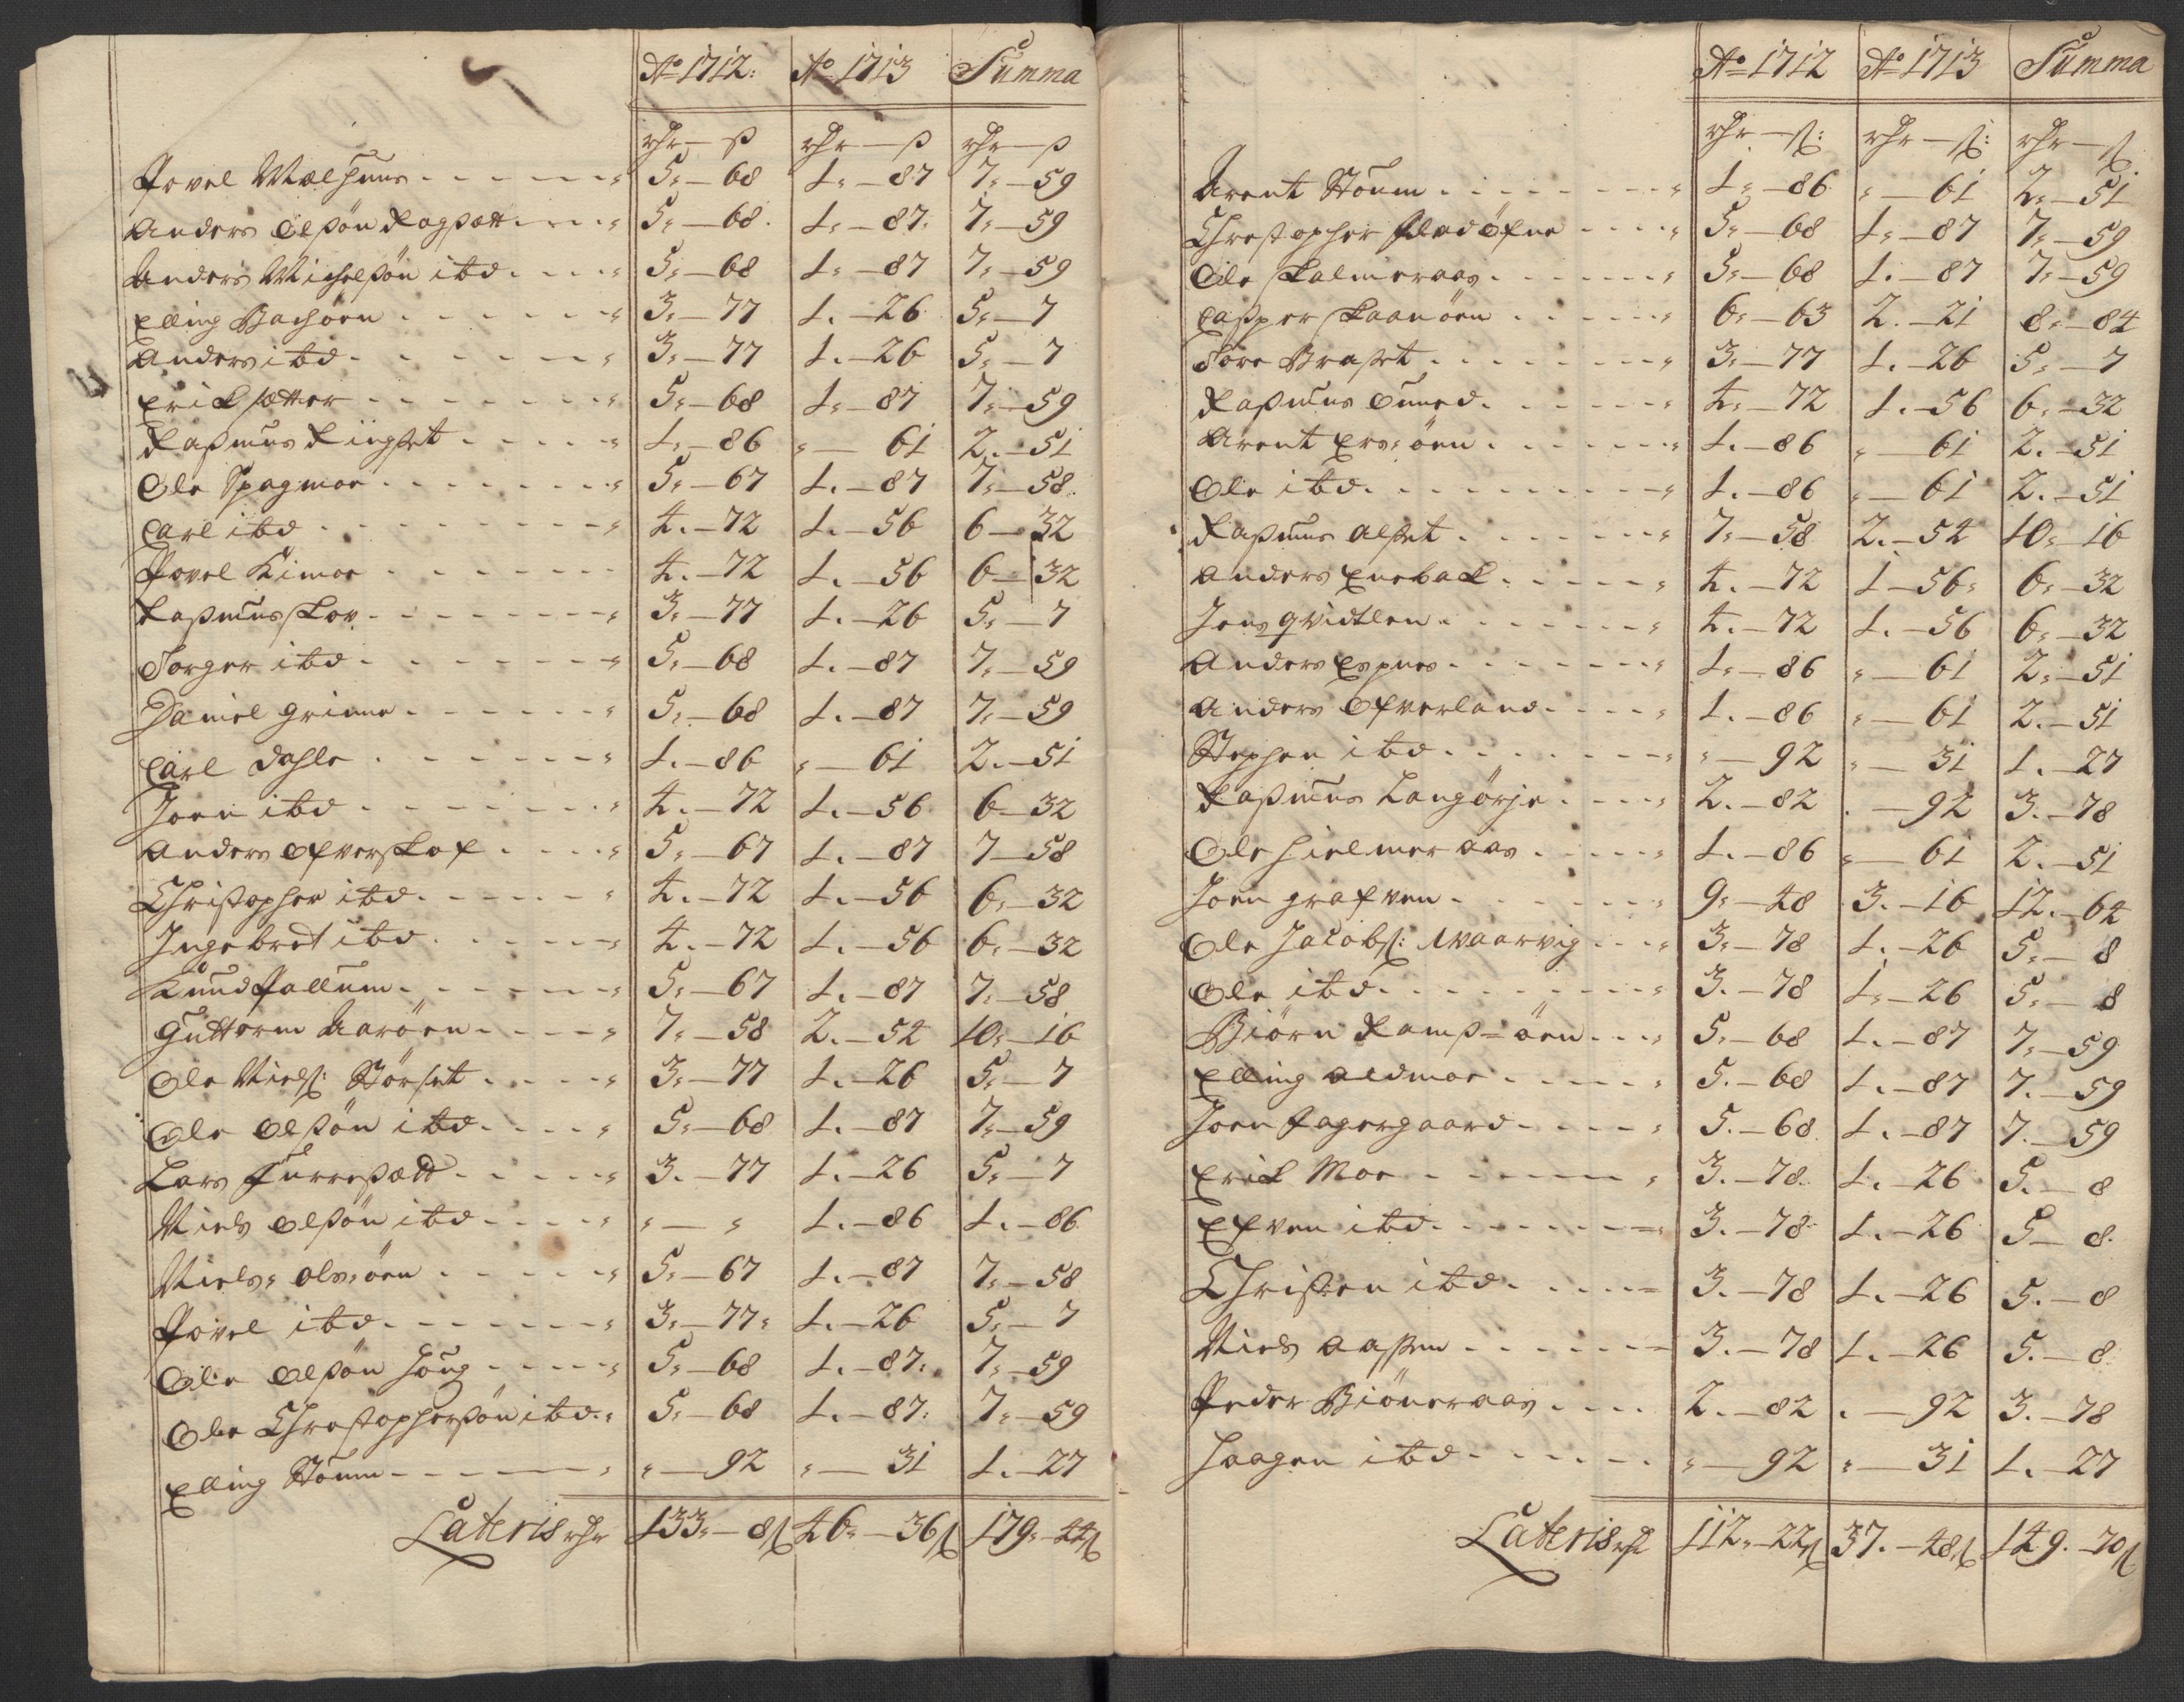 Ao 1712: Ao 1713 Summa
rdr — ß rdr — ß rdr — ß
Povel Melhuus 5 — 68 1 — 87 7 — 59
Anders Olßøn Ragßæt 5 — 68 1 — 87 7 — 59
Anders Michelßøn ibd 5 — 68 1 — 87 7 — 59
Elling Bachøen 3 — 77 1 — 26 5 — 7
Anders ibd 3 — 77 1 — 26 5 — 7
Erick sætter 5 — 68 1 — 87 7 — 59
Raßmus Ringset 1 — 86 " — 61 2 — 51
Ole Spagmoe 5 — 67 1 — 87 7 — 58
Carl ibd 4 — 72 1 — 56 6 — 32
Povel Kimoe 4 — 72 1 — 56 6 — 32
Raßmus skov 3 — 77 1 — 26 5 — 7
Torger ibd 5 — 68 1 — 87 7 — 59
Daniel Grinne 5 — 68 1 — 87 7 — 59
Carl Dahle 1 — 86 " — 61 2 — 51
Joen ibd 4 — 72 1 — 56 6 — 32
Anders Ofverskof 5 — 67 1 — 87 7 — 58
Christopher ibd 4 — 72 1 — 56 6 — 32
Ingebret ibd 4 — 72 1 — 56 6 — 32
Knud Pallum 5 — 67 1 — 87 7 — 58
Guttorm Aarøen 7 — 58 2 — 54 10 — 16
Ole Nielß: Størset 3 — 77 1 — 26 5 — 7
Ole Olßøn ibd 5 — 68 1 — 87 7 — 59
Lars Furreßædt 3 — 77 1 — 26 5 — 7
Niels Olßøn ibd " — " 1 — 86 1 — 86
Niels Olsøen 5 — 67 1 — 87 7 — 58
Povel ibd 3 — 77 1 — 26 5 — 7
Ole Olßøn Houg 5 — 68 1 — 87 7 — 59
Ole Christopherßøn ibd 5 — 68 1 — 87 7 — 59
Elling Stoum " — 92 " — 31 1 — 27
Lateris rdr 133 — 8ß 46 — 36ß 179 — 44ß
Ao 1712 Ao 1713 Summa
rdr — ß: rdr — ß: rdr — ß
Arent Stoum 1 — 86 " — 61 2 — 51
Christopher Fladøfne 5 — 68 1 — 87 7 — 59
Ole skalmeraas 5 — 68 1 — 87 7 — 59
Casper skaanøen 6 — 63 2 — 21 8 — 84
Tore Braset 3 — 77 1 — 26 5 — 7
Raßmus 4 — 72 1 — 56 6 — 32
Arent Ersøen 1 — 86 " — 61 2 — 51
Ole ibd 1 — 86 " — 61 2 — 51
Raßmus Alset 7 — 58 2 — 54 10 — 16
Anders Eneback 4 — 72 1 — 56 6 — 32
Jens qvidtlen 4 — 72 1 — 56 6 — 32
Anders Espnes 1 — 86 " — 61 2 — 51
Anders Ofverland 1 — 86 " — 61 2 — 51
Stephen ibd " — 92 " — 31 1 — 27
Raßmus Langørje 2 — 82 " — 92 3 — 78
Ole Hielmeraas 1 — 86 " — 61 2 — 51
Joen grafven 9 — 48 3 — 16 12 — 64
Ole Jacobß: Waarvig 3 — 78 1 — 26 5 — 8
Ole ibd 3 — 78 1 — 26 5 — 8
Biørn Ramsøen 5 — 68 1 — 87 7 — 59
Elling Aldmoe 5 — 68 1 — 87 7 — 59
Joen Fagergaard 5 — 68 1 — 87 7 — 59
Erick Moe 3 — 78 1 — 26 5 — 8
Efven ibd 3 — 78 1 — 26 5 — 8
Christen ibd 3 — 78 1 — 26 5 — 8
Niels Aaßen 3 — 78 1 — 26 5 — 8
Peder Biøneraas 2 — 82 " — 92 3 — 78
Haagen ibd " — 92 " — 31 1 — 27
Lateris rd 112 — 22ß 37 — 48ß 149 — 70ß